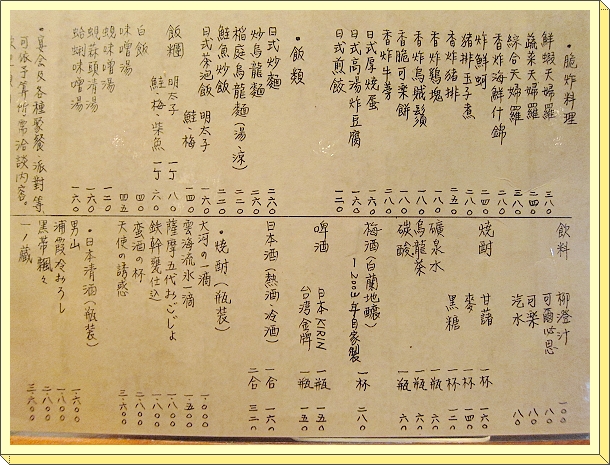 •脆炸料理
鮮蝦天婦羅 三八〇
蔬菜天婦羅 二四〇
綜合天婦羅 三八〇
香炸海鮮什錦 二八〇
炸鮮蚵 二四〇
豬排玉子煮 二八〇
香炸豬排 二五〇
香炸鷄塊 一八〇
香炸烏賊鬚 一八〇
香脆可樂餅 一八〇
香炸牛蒡 二八〇
日式厚燒蛋 一六〇
日式高湯炸豆腐 一六〇
日式煎餃 一二〇
•飯類
日式炒麵 二六〇
炒烏龍麵 二六〇
稻庭烏龍麵(湯、涼) 二二〇
鮭魚炒飯 二二〇
日式茶泡飯 明太子 一六〇
鮭、梅 一四〇
飯糰 明太子 一ケ 八〇
鮭、梅、柴魚 一ケ 六〇
白飯 四〇
味噌湯 四五
蜆味噌湯 一二〇
蜆蒜頭清湯 一六〇
蛤蜊味噌湯 一六〇
•宴會及各種聚餐、派對等
可依予算所需洽談內容。
飲料
柳澄汁 一〇〇
可爾必思 八〇
可樂 八〇
汽水 八〇
燒酎 甘藷 一杯 一六〇
麥 一杯 一四〇
黑糖 一杯 二〇〇
礦泉水 一瓶 六〇
烏龍茶 一瓶 六〇
碳酸 一瓶 六〇
梅酒(白蘭地釀) 一杯 二八〇
—2004年自家製
啤酒 日本KIRIN 一瓶 一五〇
台湾金牌 一瓶 一五〇
日本酒(熱酒、冷酒) 一合 一六〇
二合 三二〇
•燒酎(瓶装)
大河の一滴 一、〇〇〇
雲海流水一滴 一、五〇〇
薩摩五代おごじょ 一、八〇〇
鉄幹甕仕込 一、八〇〇
蛮酒の杯 二、八〇〇
天使の誘惑 三、六〇〇
•日本清酒(瓶装)
男山 一、六〇〇
浦霞冷おろし 一、八〇〇
黑帯飄々 二、八〇〇
一ノ蔵 三、六〇〇